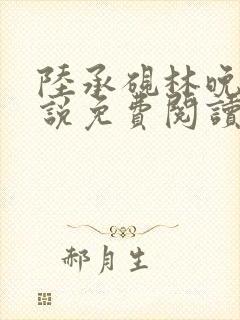 陸承硯林晚
説免費閱讀
郝月生